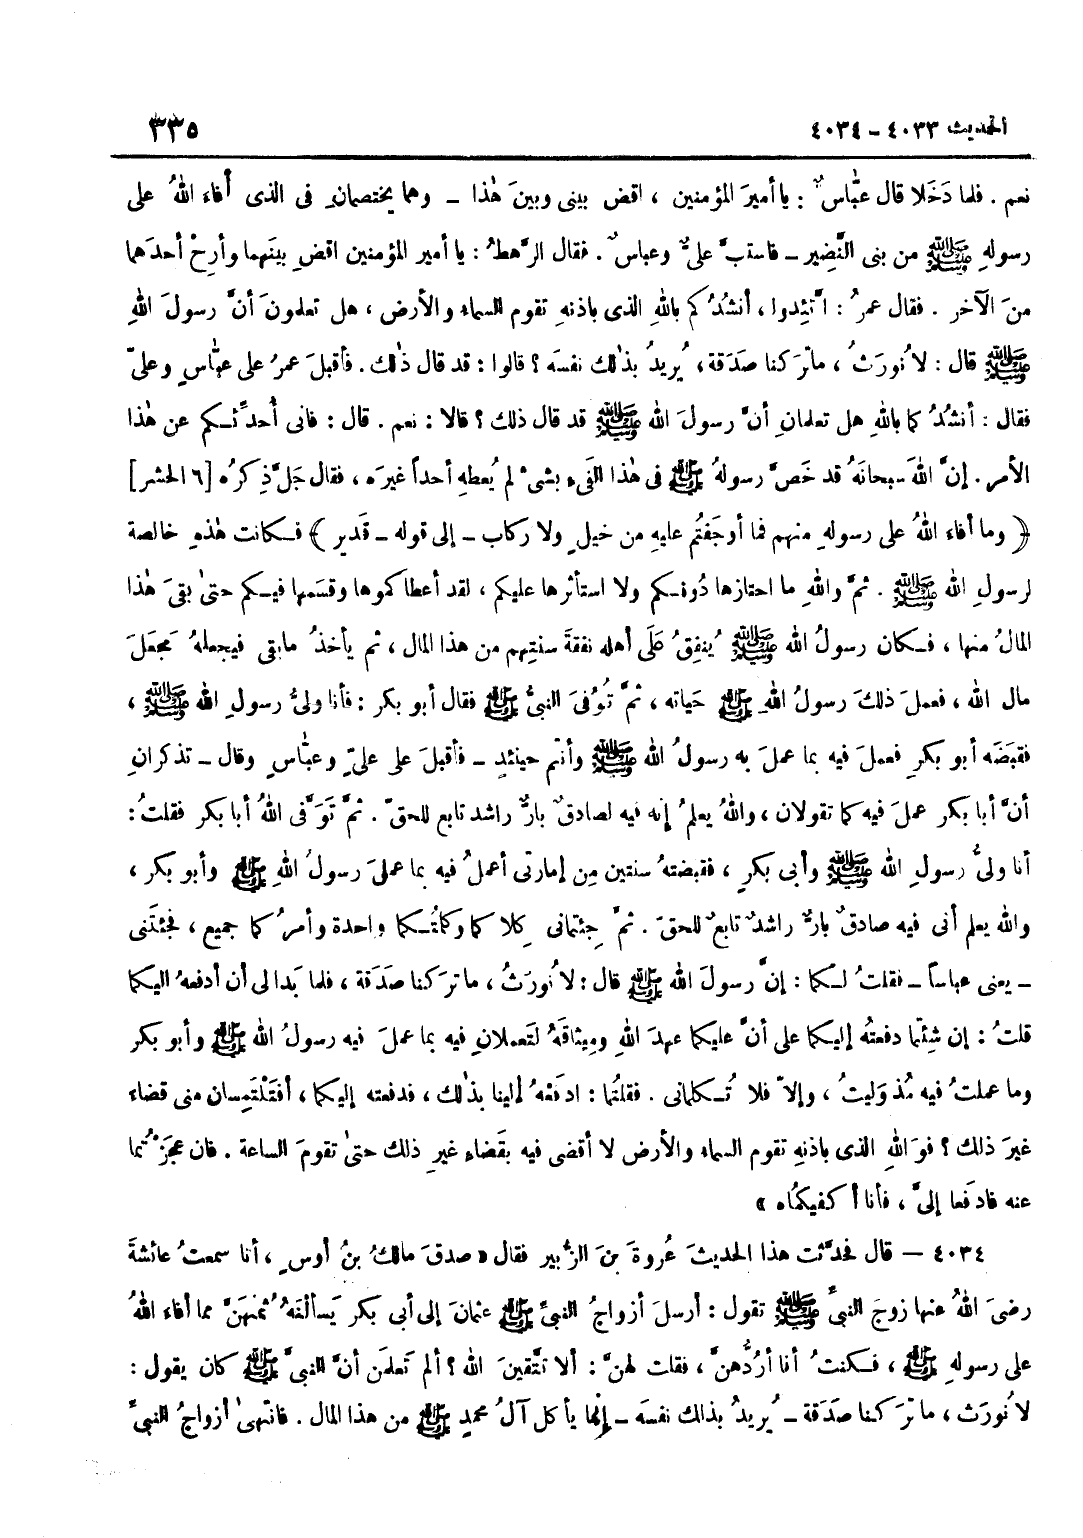 الحديث ٤٠٣٣ - ٤٠٣٤ ٣٣٥
نعم . فلما دَخَلا قال عبَّاسٌ : يا أميرَ المؤمنين ، اقض بينى وبينَ هٰذا ــ وهما يختصمانِ فى الذى أفاء اللهُ على
رسولهِ ﷺ من بنى النَّضِير ــ فاستبَّ علىٌّ وعباسٌ . فقال الرَّهطُ : يا أمير المؤمنين اقضِ بينَهما وأرِحْ أحدَهما
منَ الآخر . فقال عمرُ : اتَّئِدوا ، أنشُدُكم باللهِ الذى باذنهِ تقوم السماء والأرض ، هل تعلمونَ أنَّ رسولَ اللهِ
ﷺ قال : لا نُورَثُ ، ما تَركنا صَدَقة ، يُريدُ بذٰلك نفسَه ؟ قالوا : قد قال ذٰلك . فأقبلَ عمرُ على عبَّاسٍ وعلىّ
فقال : أنشُدُكما باللهِ هل تعلمانِ أنَّ رسولَ الله ﷺ قد قال ذلك ؟ قالا : نعم . قال : فانى أُحدِّثُكم عن هٰذا
الأمر . إنَّ اللهَ سبحانَهُ قد خَصَّ رسولهُ ﷺ فى هٰذا الفَىء بشىء لم يُعطهِ أحداً غيرَه ، فقال جَلَّ ذِكرُه [ ٦ الحشر ]
﴿ وما أفاء اللهُ على رسولهِ منهم فما أوجَفتُم عليهِ من خيلٍ ولا ركاب ــ إلى قوله ــ قَدير ﴾ فكانت هٰذهِ خالصة
لرسولِ الله ﷺ . ثمَّ واللهِ ما احتازها دُونكم ولا استأثرها عليكم ، لقد أعطاكموها وقسَمها فيكم حتىٰ بقىَ هٰذا
المالُ منها ، فكان رسولُ الله ﷺ يُنفِقُ عَلَى أهله نفقةَ سنتِهم من هذا المال ، ثم يأخذُ مابقى فيجعلهُ مَجعَلَ
مال الله ، فعملَ ذلكَ رسولُ اللهِ ﷺ حَياته ، ثمَّ تُوُفىَ النبىُّ ﷺ فقال أبو بكر : فأنا ولىُّ رسولِ الله ﷺ ،
فقبَضَه أبو بكرٍ فعملَ فيه بما عملَ به رسولُ الله ﷺ وأنتم حينئذٍ ــ فأقبلَ على علىٍّ وعبَّاسٍ وقال ــ تذكرانِ
أنَّ أبا بكر عملَ فيه كما تقولان ، واللهُ يعلمُ إنه فيه لصادقٌ بارٌّ راشد تابع للحقّ . ثمَّ تَوَفَّى اللهُ أبا بكر فقلتُ :
أنا ولىُّ رسولِ الله ﷺ وأبى بكرٍ ، فقبضتهُ سنتين مِن إمارتى أعملُ فيه بما عملَ رسولُ اللهِ ﷺ وأبو بكر ،
والله يعلم أنى فيه صادقٌ بارٌّ راشدٌ تابعٌ للحقّ . ثمَّ جِئتمانى كِلاكما وكلمتُكما واحدة وأمرُكما جميع ، فجئتَنى
ــ يعنى عباساً ــ فقلتُ لكما : إنَّ رسولَ الله ﷺ قال : لا نُورَثُ ، ما تركنا صَدَقة ، فلما بَدا لى أن أدفعهُ اليكما
قلتُ : إن شِئتما دفعتُه إليكما على أنَّ عليكما عهدَ اللهِ ومِيثاقَهُ لتَعملانِ فيه بما عملَ فيه رسولُ الله ﷺ وأبو بكر
وما عملتُ فيه مُذ وَليتُ ، وإلاّ فلا تُكلمانى . فقلتُما : ادفَعْهُ إلينا بذٰلك ، فدفعته إليكما ، أفتَلْتَمِسان منى قضاء
غيرَ ذلك ؟ فوَاللهِ الذى باذنهِ تقوم السماء والأرض لا أقضى فيه بقَضاءِ غيرِ ذلك حتىٰ تقومَ الساعة . فان عجَزْتُما
عنه فادفَعا إلىَّ ، فأنا أكفيكمُاه »
٤٠٣٤ — قال فحدَّثت هذا الحديثَ عُروةَ بنَ الزُّبير فقال « صدقَ مالكُ بنُ أوسٍ ، أنا سمعتُ عائشةَ
رضىَ اللهُ عنها زوجَ النبىِّ ﷺ تقول : أرسلَ أزواجُ النبىِّ ﷺ عثمانَ إلى أبى بكر يَسألْنَهُ ثُمنهنَّ مما أفاء اللهُ
على رسولهِ ﷺ ، فكنتُ أنا أرُدُّهنَّ ، فقلت لهنَّ : ألا تتَّقينَ الله ؟ ألم تَعلمَن أنَّ النبىَّ ﷺ كان يقول :
لا نُورَث ، ما تَركنا صَدَقة ــ يُريدُ بذالك نفسَه ــ إنَّما يأكل آلُ محمدٍ ﷺ من هذا المال . فانتهىٰ أزواجُ النبىِّ